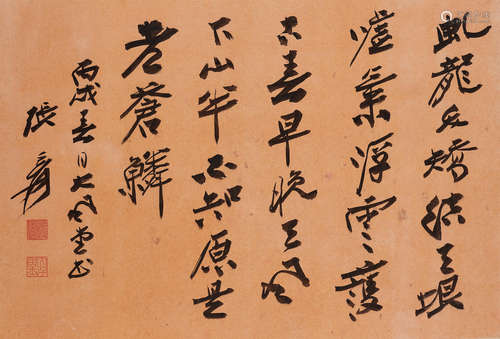 虬龍夭矯天垠
噓氣浮雲護
古春早晚天風
下山半不知原是
老蒼鱗
丙戌春日大風堂書
張爰